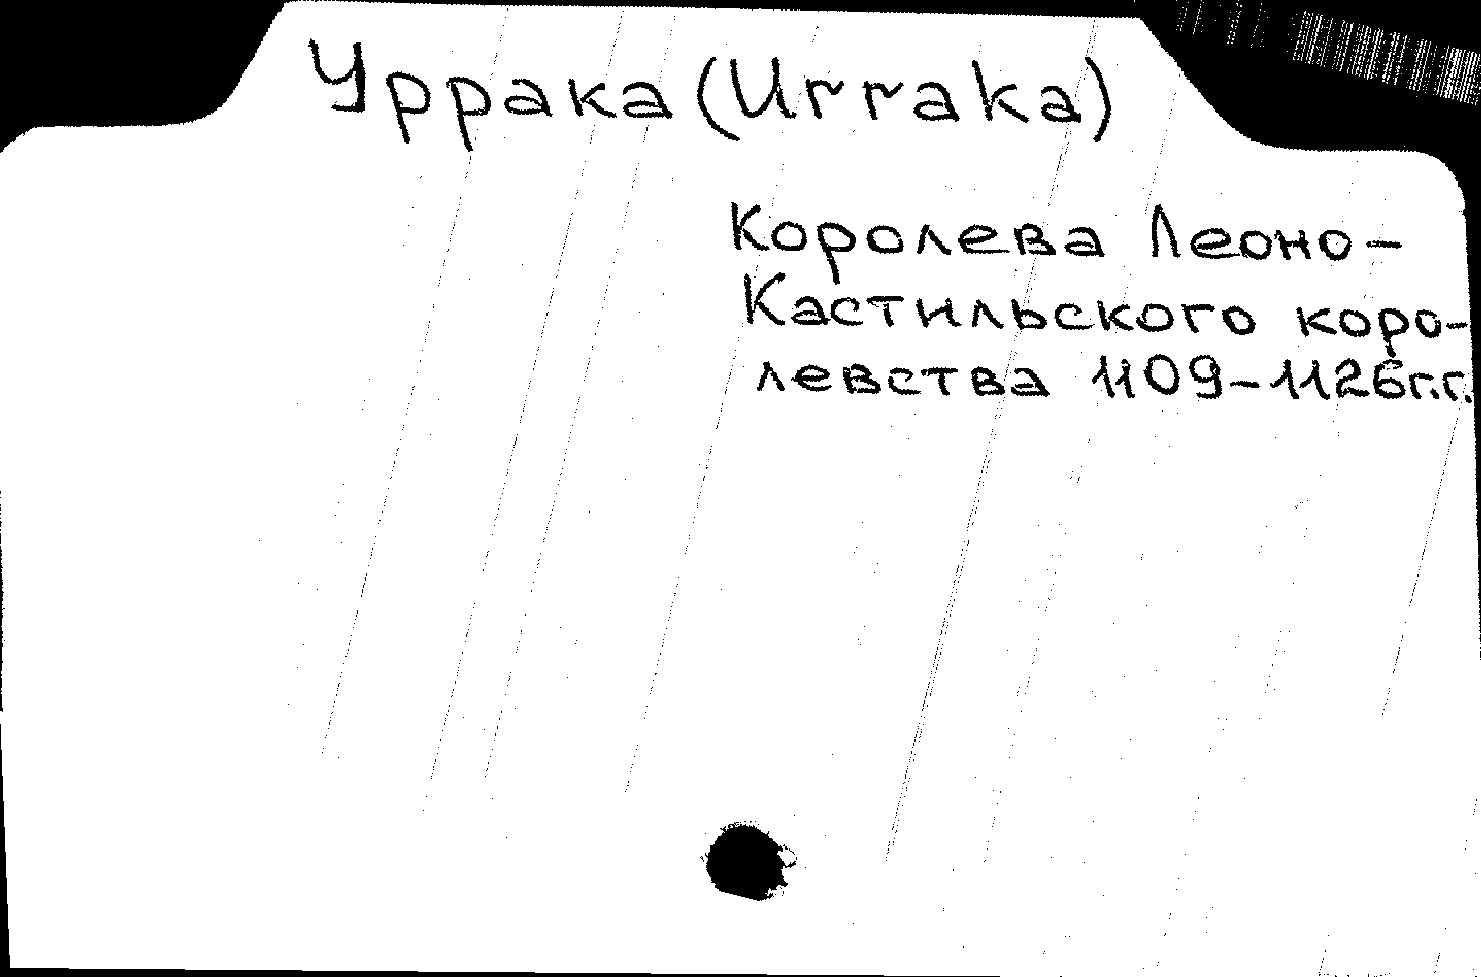 Уррака (Urraka)
Королева Леоно-
Кастильского коро-
левства 1109-1126г.г.